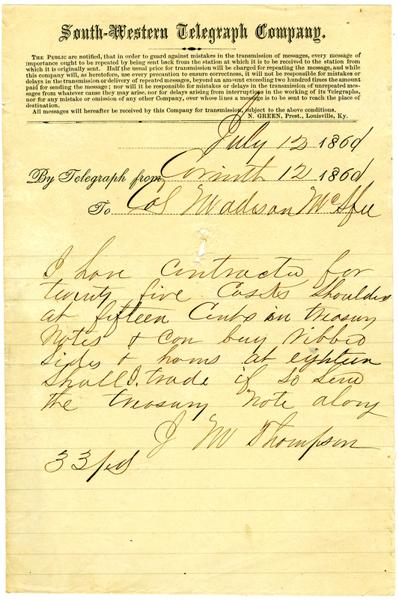 South-Western Telegraph Company.
THE PUBLIC are notified, that in order to guard against mistakes in the transmission of messages, every message of
importance ought to be repeated by being sent back from the station at which it is to be received to the station from
which it is originally sent. Half the usual price for transmission will be charged for repeating the message, and while
this company will, as heretofore, use every precaution to ensure correctness, it will not be responsible for mistakes or
delays in the transmission or delivery of repeated messages, beyond an amount exceeding two hundred times the amount
paid for sending the message; nor will it be responsible for mistakes or delays in the transmission of unrepeated messages
from whatever cause they may arise, nor for delays arising from interruptions in the working of its Telegraphs,
nor for any mistake or omission of any other Company, over whose lines a message is to be sent to reach the place of
destination.
All messages will hereafter be received by this Company for transmission, subject to the above conditions.
N. GREEN, Prest., Louisville, Ky.
July 12 1861
By Telegraph from Corinth 12 1861
To Col Madison McAfee
I have contracted for
twenty five Casks Shoulders
at fifteen Cents in treasury
Notes & can buy ribbed
sides & hams at eighteen
Shall I trade if so send
the treasury Note along
J M Thompson
33 pd